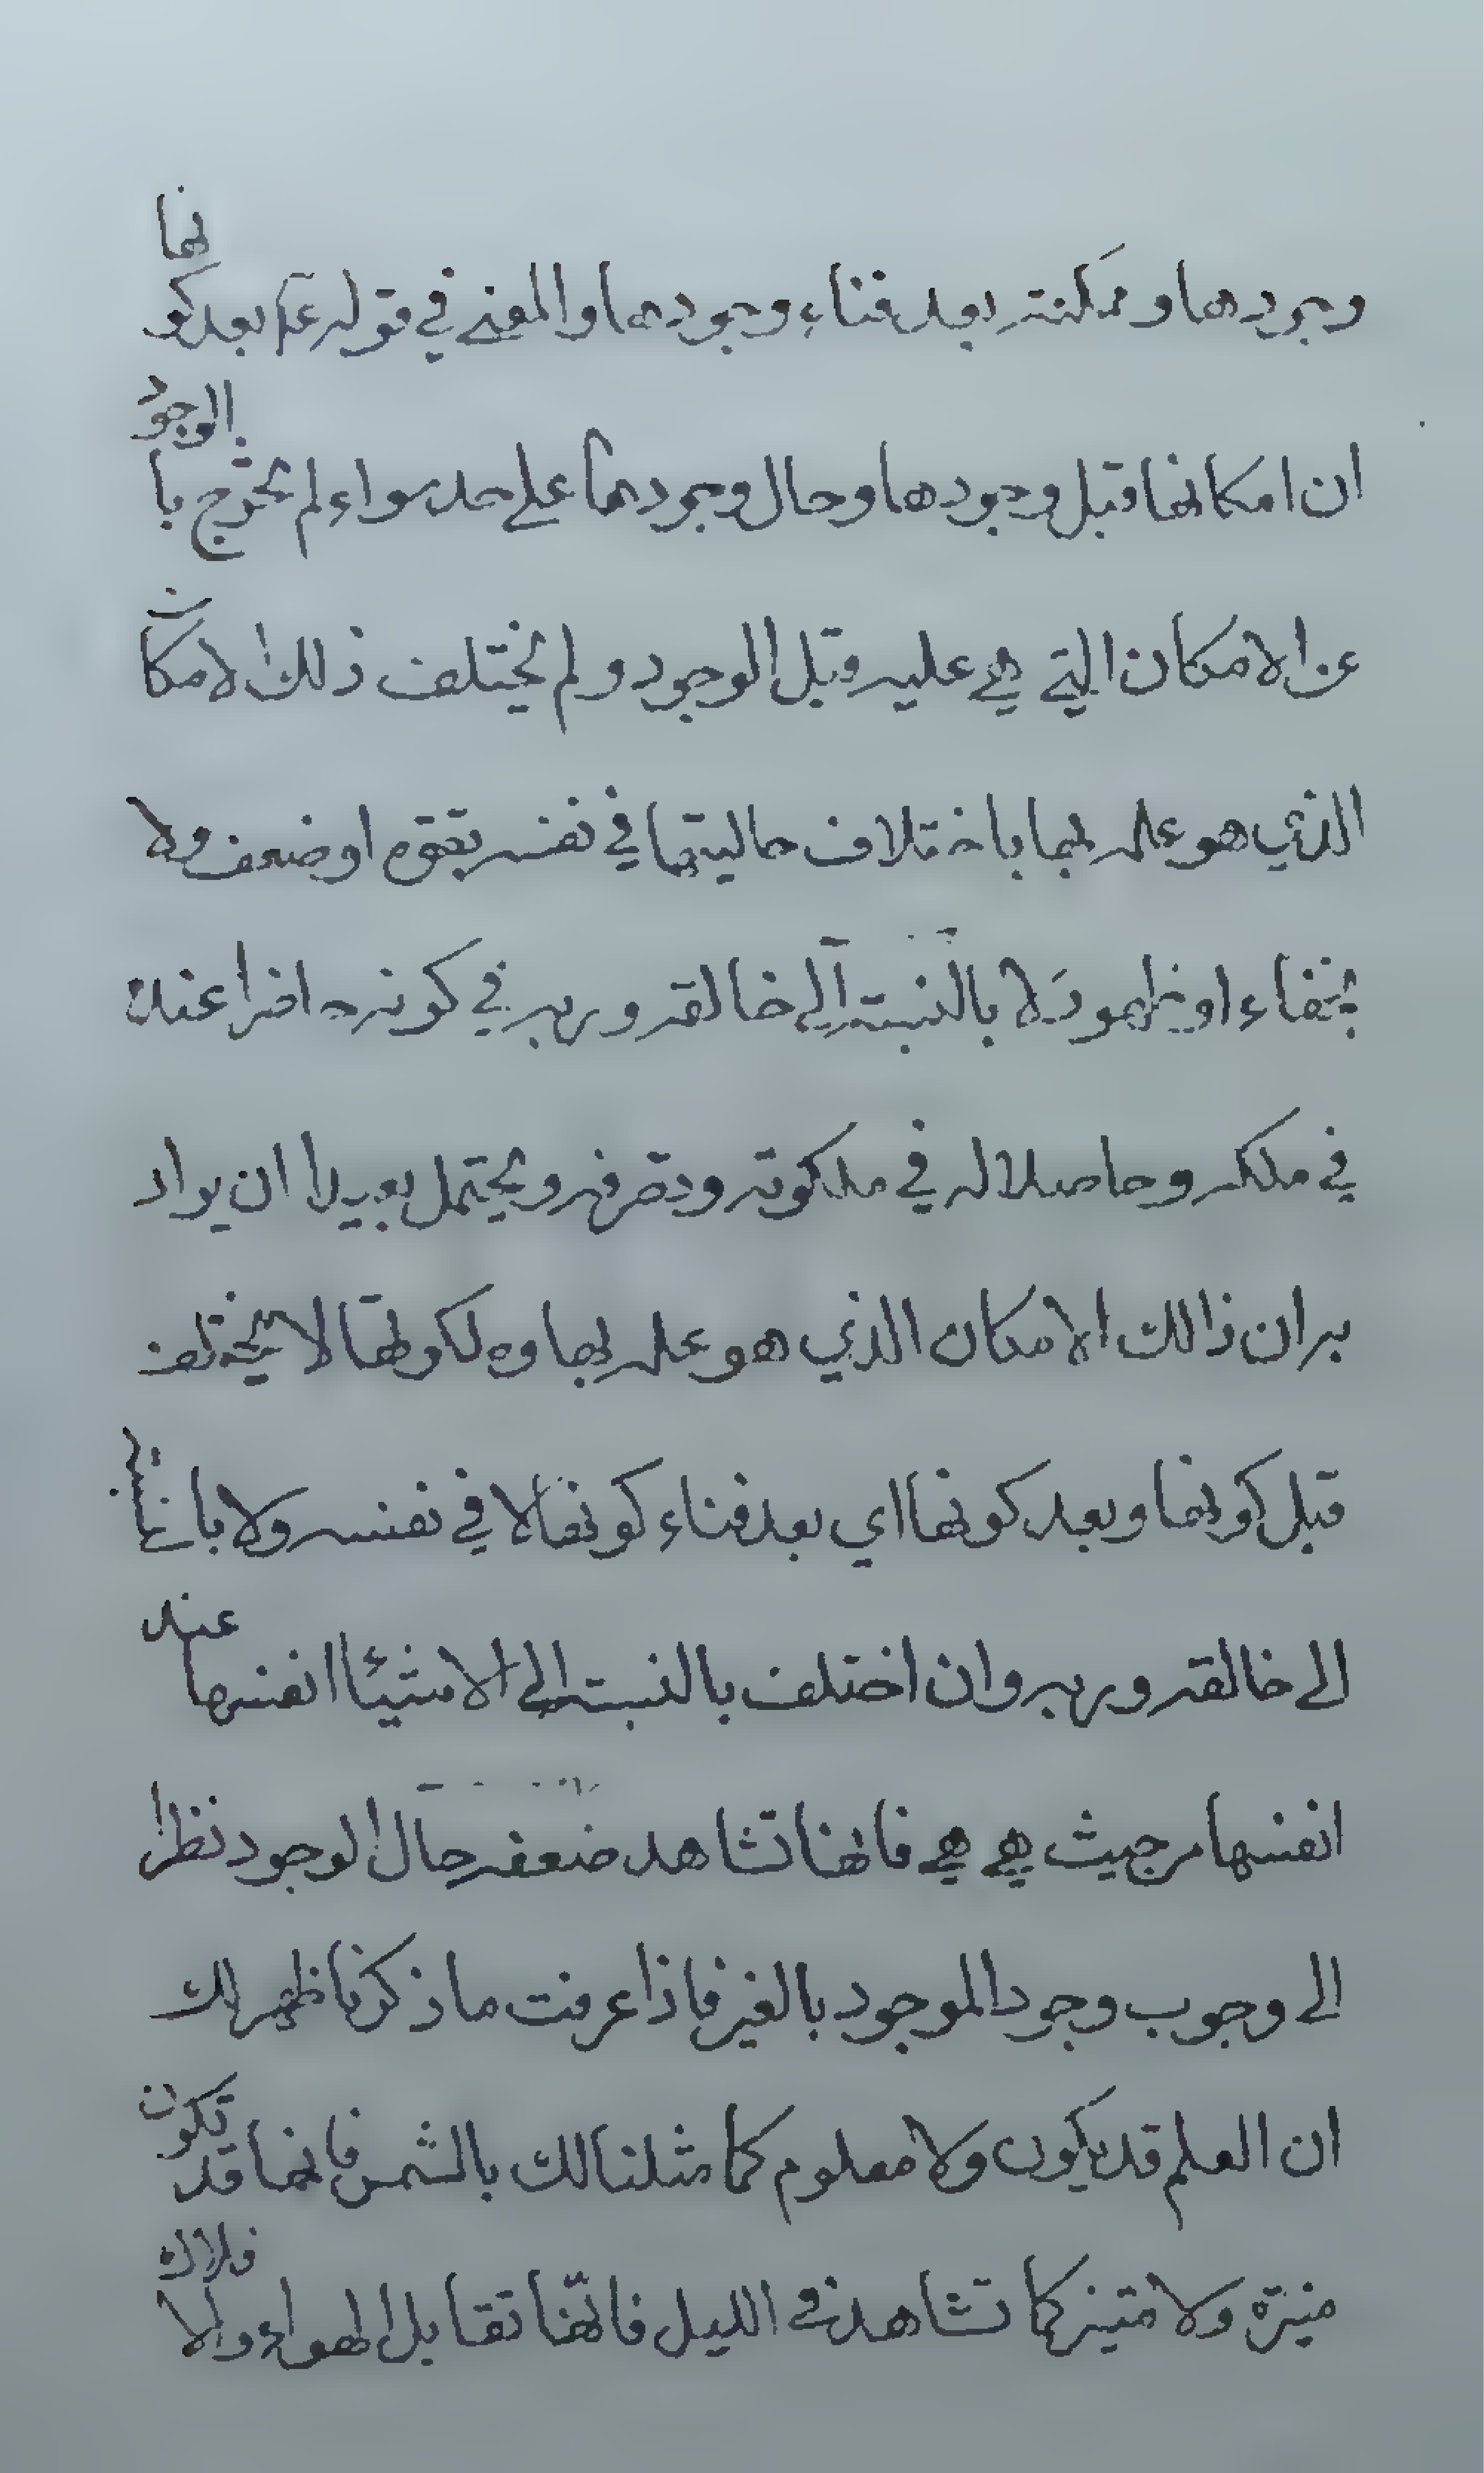 وجودها وممكنة بعد فناء وجودها والمعنى في قوله عم بعد كونها
ان امكانها قبل وجودها وحال وجودها على حد سواء لم تخرج بالوجود
عن الامكان التي هي عليه قبل الوجود ولم يختلف ذلك الامكان
الذي هو علم بها باختلاف حاليتها في نفسه بقوة او ضعف ولا
بخفاء او ظهور ولا بالنسبة الى خالقه وربه في كونه حاضرا عنده
في ملكه وحاصلا له في ملكوته وتصرفه ويحتمل بعيدا ان يراد
به ان ذالك الامكان الذي هو علم بها و لكونها لا يختلف
قبل كونها وبعد كونها اي بعد فناء كونها لا في نفسه ولا
الى خالقه وربه وان اختلف بالنسبة الى الاشيئا انفسها عند
انفسها من حيث هي هي فانها تشاهد ضعفه حال الوجود نظرا
الى وجوب وجود الموجود بالغير فاذا عرفت ما ذكرنا ظهر لك
ان العلم قد يكون ولا معلوم كما مثلنا لك بالشمس فانها قد تكون
منيرة ولا متيز كما تشاهد في الليل فانها تقابل الهواء والافلاك